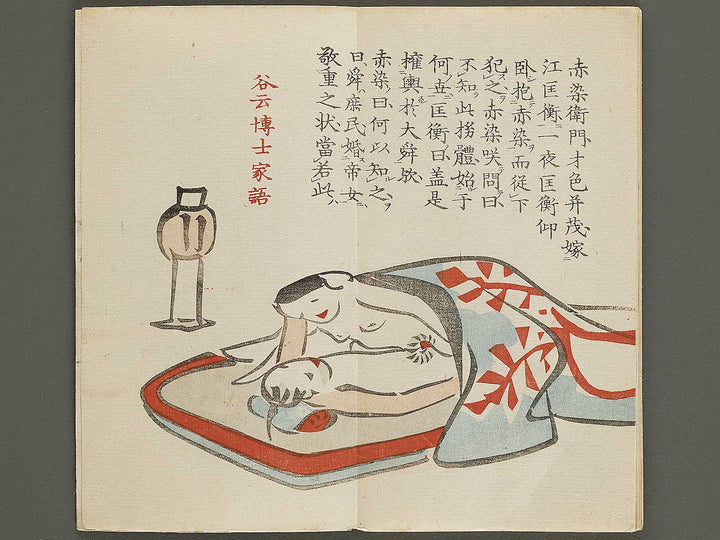 赤染衛門才色并茂嫁
江匡衡一夜匡衡仰
臥抱赤染而従下
犯之赤染咲問曰
不知此拐體始于
何世匡衡曰盖是
権輿於大舜欤
赤染曰何以知之
曰舜庶民婚帝女
敬重之状當若此
谷云博士家語